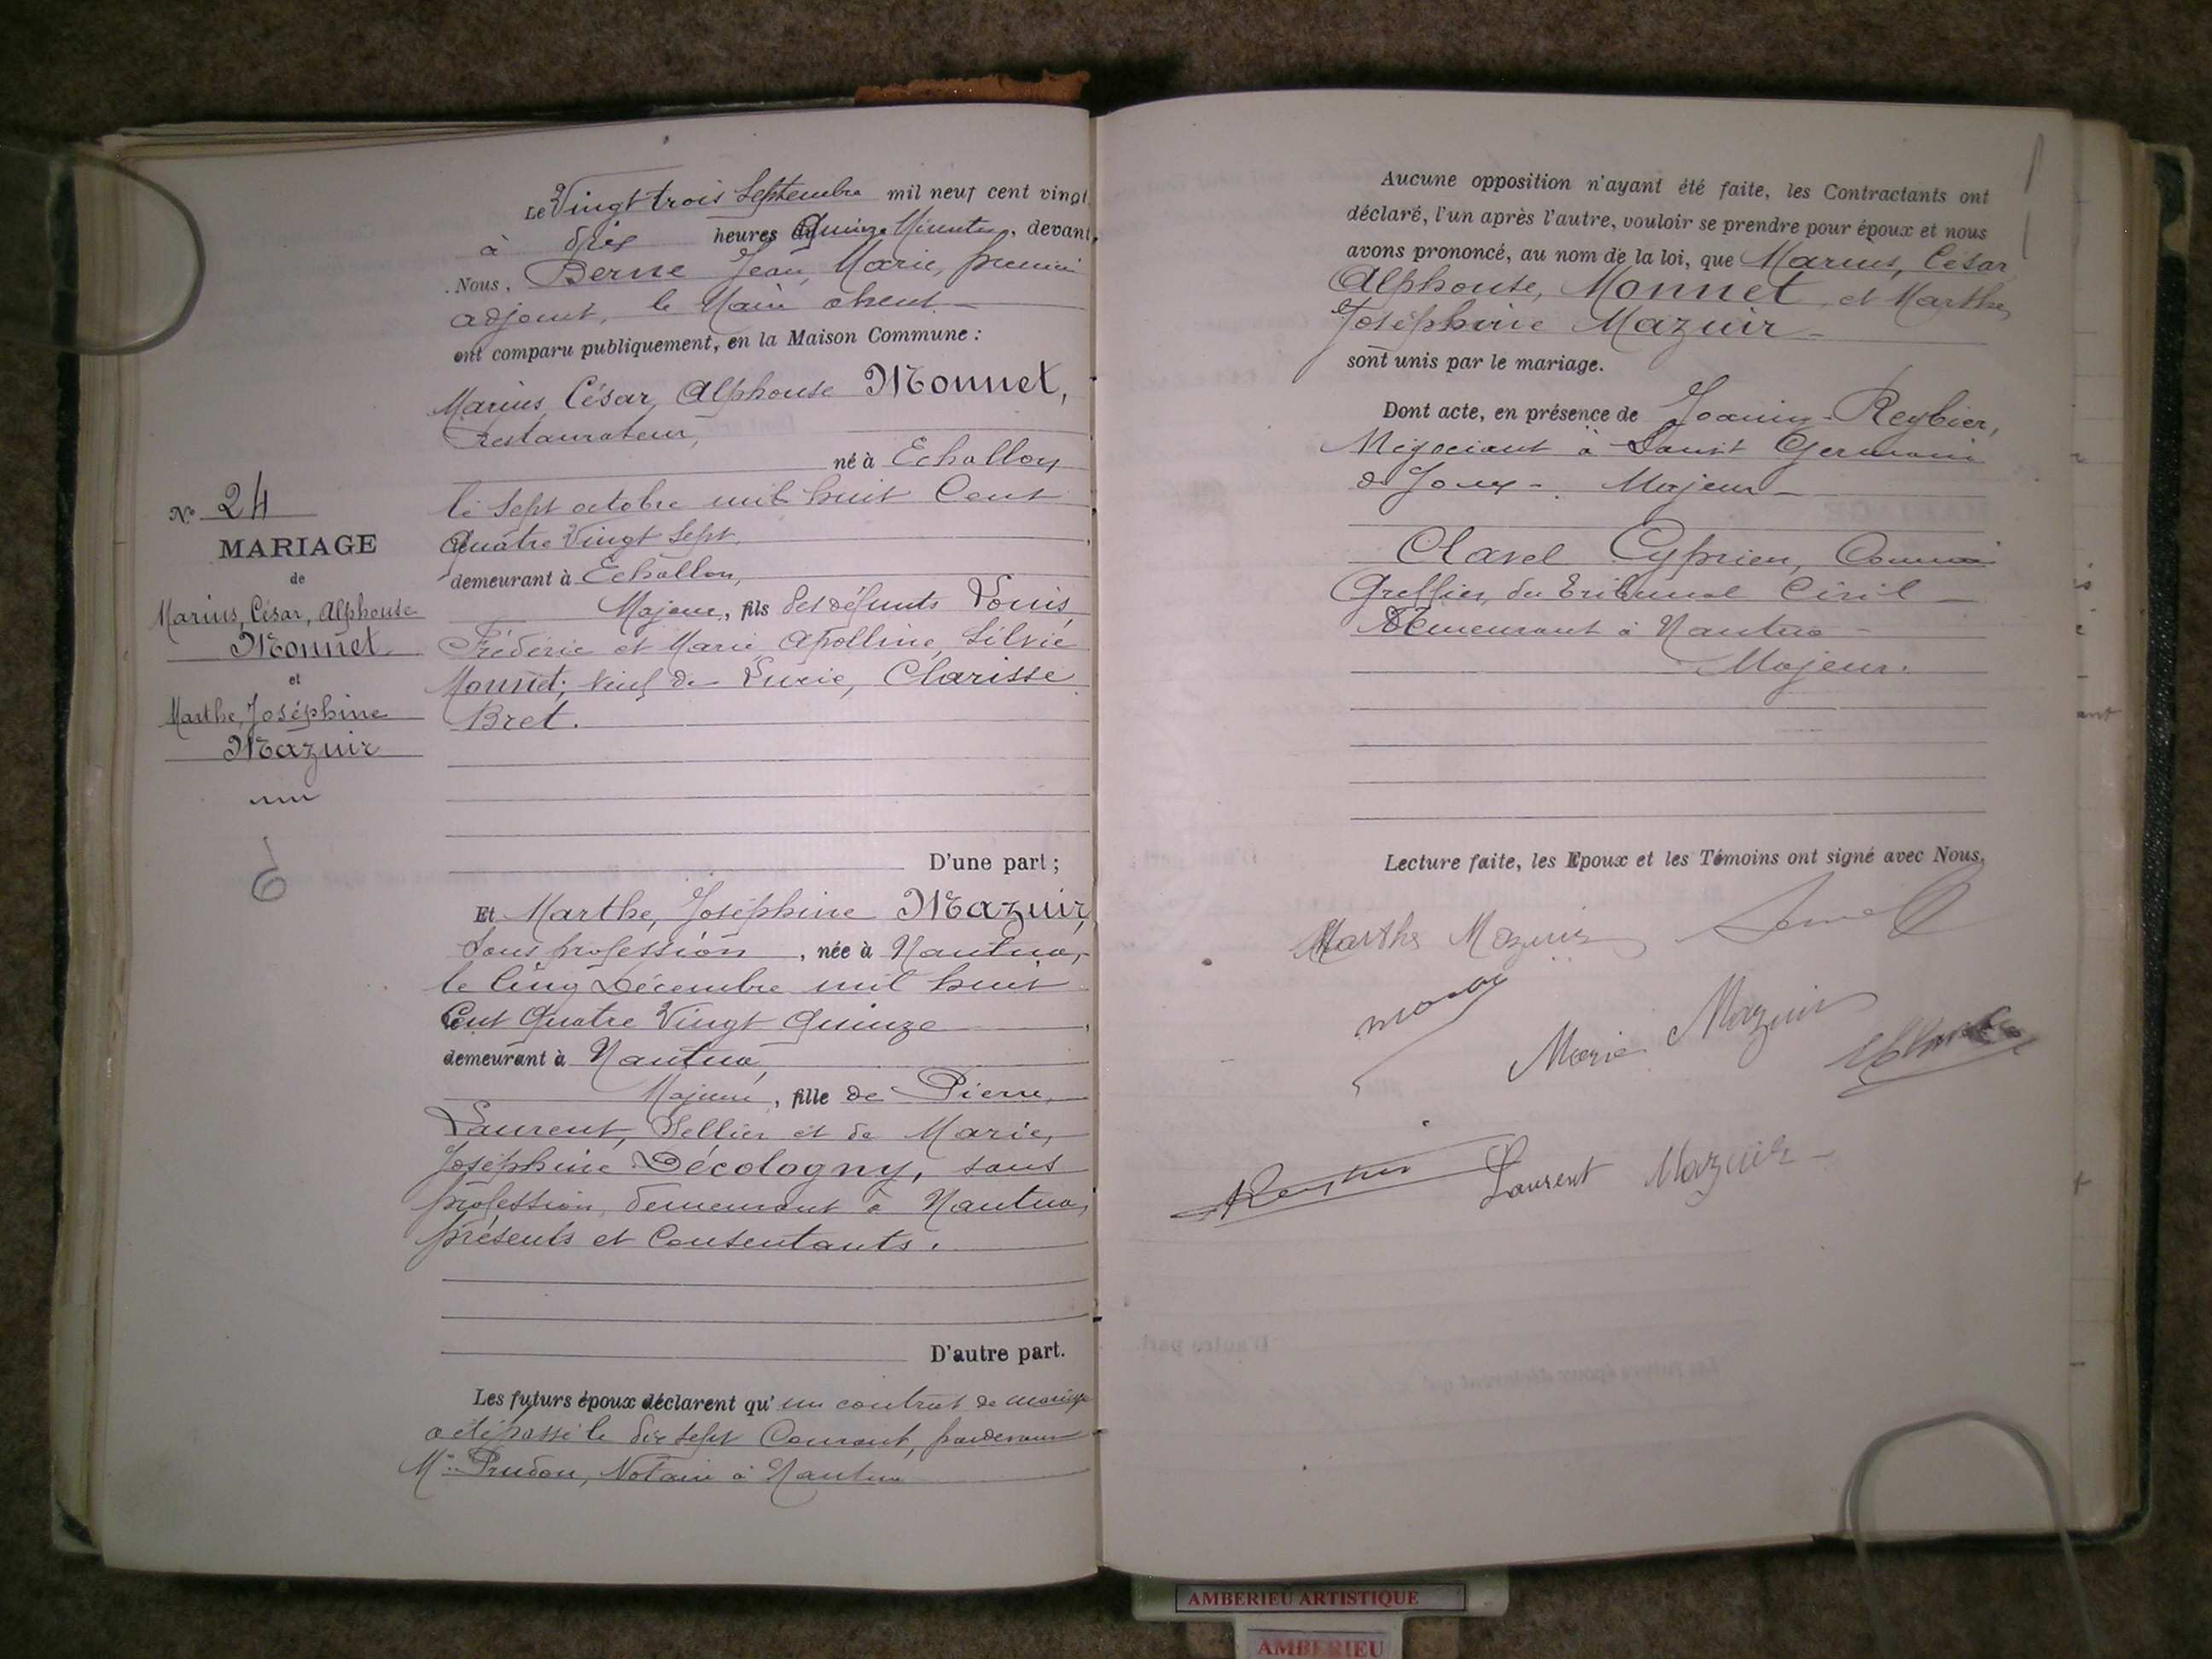 Le Vingt trois Septembre mil neuf cent vingt
à dix heures quinze Minutes, devant,
Nous, Berne Jean Marie, premier
adjoint, le Maire absent
ont comparu publiquement, en la Maison Commune :
Marius, César, Alphonse Monnet,
restaurateur,
né à Echallon
le Sept octobre mil huit Cent
Quatre Vingt Sept,
demeurant à Echallon,
Majeur, fils des défunts Louis,
Frédéric et Marie, Apolline, Silvie
Monnet; veuf de Lucie, Clarisse
Bret.
D'une part ;
Nº 24
MARIAGE
de
Marius, César, Alphonse
Monnet
et
Marthe, Joséphine
Mazuir
Et Marthe, Joséphine Mazuir,
Sans profession, née à Nantua,
le Cinq Décembre mil huit
Cent Quatre Vingt Quinze
demeurant à Nantua,
Majeure, fille de Pierre,
Laurent, Sellier et de Marie,
Joséphine Décologny, sans
profession, demeurant à Nantua,
présents et Consentants.
D'autre part.
Les futurs époux déclarent qu'un contrat de mariage
a été passé le dix sept Courant, pardevant
Me Prudon, Notaire à Nantua
Aucune opposition n'ayant été faite, les Contractants ont
déclaré, l'un après l'autre, vouloir se prendre pour époux et nous
avons prononcé, au nom de la loi, que Marius, César
Alphonse, Monnet, et Marthe,
Joséphine Mazuir
sont unis par le mariage.
Dont acte, en présence de Joanny Reybier,
Négociant à Saint Germain
de Joux. Majeur
Clavel Cyprien, Commis
Greffier du Tribunal Civil
Demeurant à Nantua
Majeur.
Lecture faite, les Epoux et les Témoins ont signé avec Nous,
Marthe Mazuir
Marie Mazuir
Laurent Mazuir
AMBERIEU ARTISTIQUE
AMBERIEU